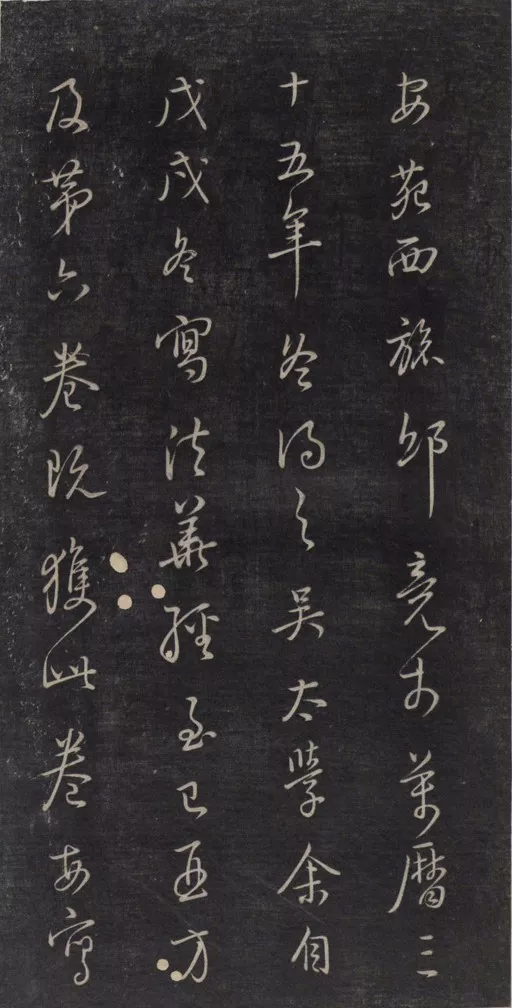 安苑西旅邸竟才萬曆三
十五年冬得之吳太學余自
戊戌冬寫法華經至己酉方
及第六卷既獲此卷每寫